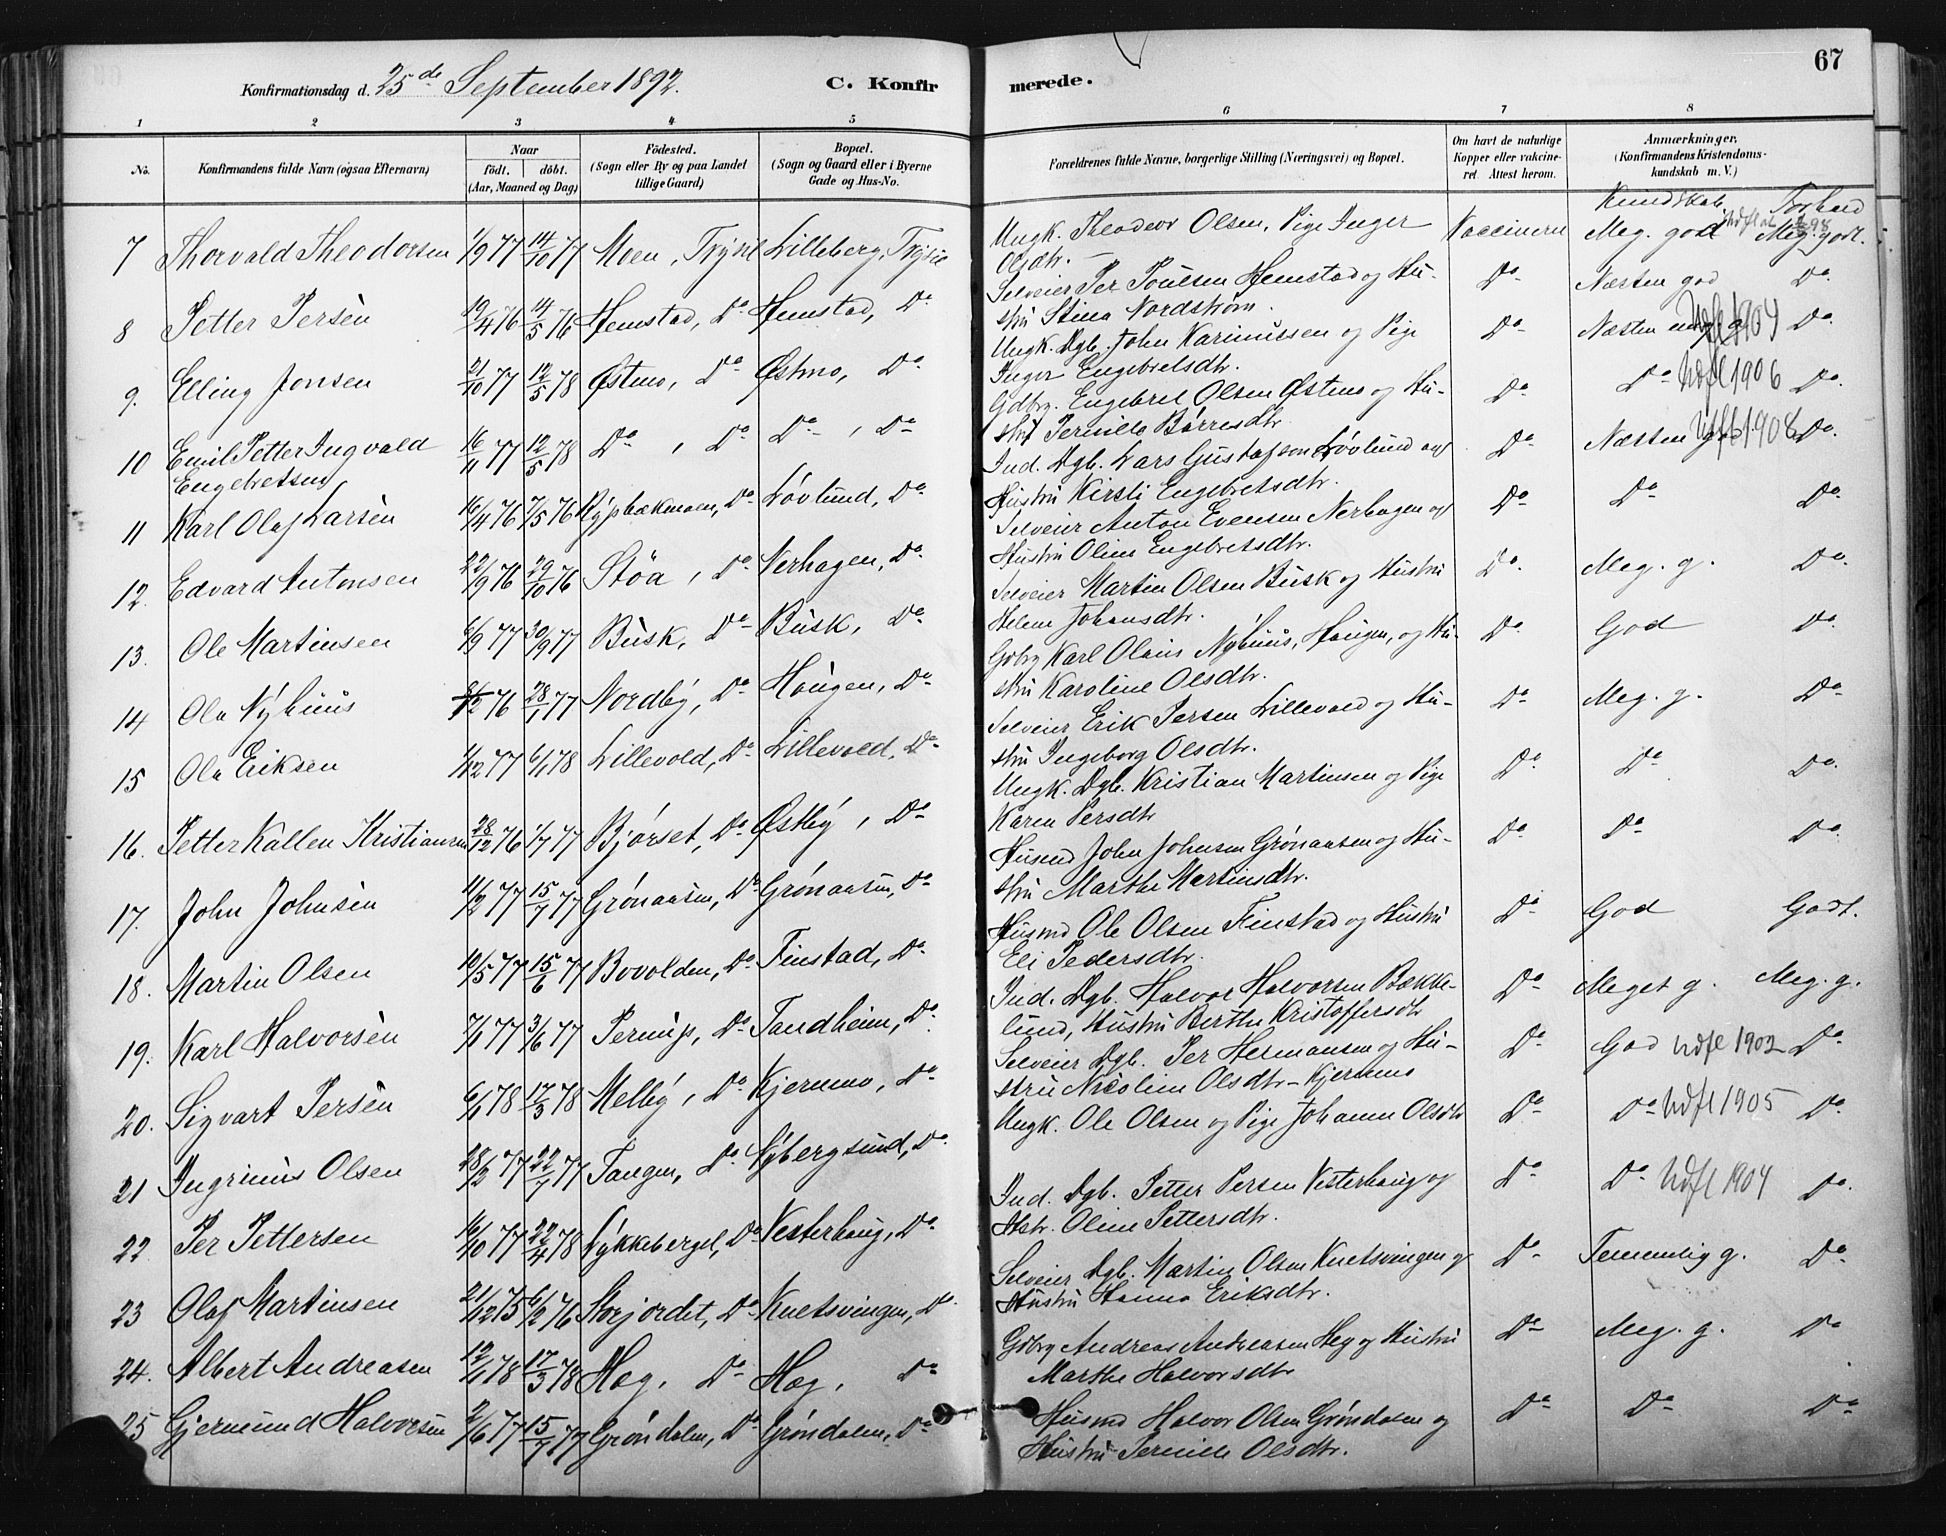 67
Konfirmationsdag d. 25de September 1892.
C. Konfirmerede.
1 2 3 4 5 6 7 8
No. Konfirmandens fulde Navn (ogsaa Efternavn) Naar født. døbt. (Aar, Maaned og Dag) Fødested. (Sogn eller By og paa Landet tillige Gaard) Bopæl. (Sogn og Gaard eller i Byerne Gade og Hus-No. Forældrenes fulde Navne, borgerlige Stilling (Næringsvei) og Bopæl. Om havt de naturlige Kopper eller vaccineret. Attest herom. Anmærkninger. (Konfirmandens Kristendomskundskab m. V.)
Kundskab Forhold
7 Thorvald Theodorsen 1/9 77 14/10 77 Moen, Trysil Lilleberg, Trysil Ungk. Theodor Olsen, Pige Inger Vaccineret Meg. god Udfl. Meg. godt.
Olsdtr.
8 Petter Persen 19/4 76 14/5 76 Hemstad, Do Hemstad, Do Selveier Per Poulsen Hemstad og Hu- Do Næsten god Do
stru Stina Nordstrøm.
9. Elling Jonsen 21/10 77 12/5 78 Østmo, Do Østmo, Do Ungk. Dgb. John Karinussen og Pige Do Næsten Udfl 1904 Do
Inger Engebretsdtr.
10 Emil Petter Ingvald 16/11 77 12/5 78 Do, Do Do, Do Gdbrg. Engebret Olsen Østmo og Hu- Do Do Udfl 1906 Do.
Engebretsen stru Pernille Børresdtr.
11 Karl Olaf Larsen 16/4 76 7/5 76 Rypbækmoen, Do Løvlund, Do Ind. Dgb. Lars Gustafson Løvlund og Do Næsten Udfl 1908 Do.
Hustru Kirsti Engebretsdtr.
12. Edvard Antonsen 22/9 76 29/10 76 Støa, Do Nerhagen, Do. Selveier Anton Evensen Nerhagen og Do Do Do
Hustru Oline Engebretsdtr.
13. Ole Martinsen 6/9 77 30/9 77 Busk, Do Busk, Do Selveier Martin Olsen Busk og Hustru Do. Meg. g. Do.
Helene Johansdtr.
14 Ole Nyhuus 76 28/1 77 Nordby, Do Haugen, Do Gdbrg Karl Olaus Nyhuus, Haugen, og Hu- Do God Do
stru Karoline Olsdtr.
15 Ole Eriksen 77 6/1 78 Lillevold, Do Lillevold, Do Selveier Erik Persen Lillevold og Hu- Do Meg. g. Do
stru Ingeborg Olsdtr.
16. Petter Kallen Kristiansen 28/12 76 1/7 77 Bjørset, Do Østby, Do Ungk. Dgb. Kristian Martinsen og Pige Do Do Do.
Karen Persdtr
17. John Johnsen 11/2 77 15/7 77 Grønaasen, Do Grønaasen, Do Husmd John Johnsen Grønaasen og Hu- Do Do Do.
stru Marthe Martinsdtr.
18. Martin Olsen 10/5 77 15/6 77 Bovolden, Do Finstad, Do Husmd Ole Olsen Finstad og Hustru Do God Godt.
Eli Pedersdtr.
19. Karl Halvorsen 7/1 77 3/6 77 Pernup, Do Tandheim, Do Ind. Dgb. Halvor Halvorsen Bække- Do Meget g. Meg. g.
lund, Hustru Berthe Kristoffersdtr
20. Sigvart Persen 6/1 78 17/3 78 Melby, Do Kjernmo, Do Selveier Dgb. Per Hermansen og Hu- Do God Udfl 1902 Do
stru Nicoline Olsdtr - Kjernmo
21 Ingrinus Olsen 28/2 77 22/7 77 Tangen, Do Nybergsund, Do. Ungk. Ole Olsen og Pige Johanne Olsdtr Do Do Udfl 1905 Do
22 Per Pettersen 16/10 77 22/4 78 Lykkeberget, Do Vesterhaug, Do Ind. Dgb. Petter Persen Vesterhaug og Do Do Udfl 1904 Do.
Hstr. Oline Pettersdtr.
23 Olaf Martinsen 21/12 75 6/2 76 Storjordet, Do Knetsvingen, Do Selveier Dgb. Martin Olsen Knetsvingen og Do Temmelig g. Do
Hustru Hanna Eriksdtr.
24. Albert Andreasen 12/1 78 17/3 78 Høg, Do Høg, Do Gdbrg Andreas Andreasen Høg og Hustru Do Meg. g. Do
Marthe Halvorsdtr
25 Gjermund Halvorsen 2/6 77 15/7 77 Grøndalen, Do Grøndalen, Do Husmd Halvor Olsen Grøndalen og Do Do Do
Hustru Pernille Olsdtr.